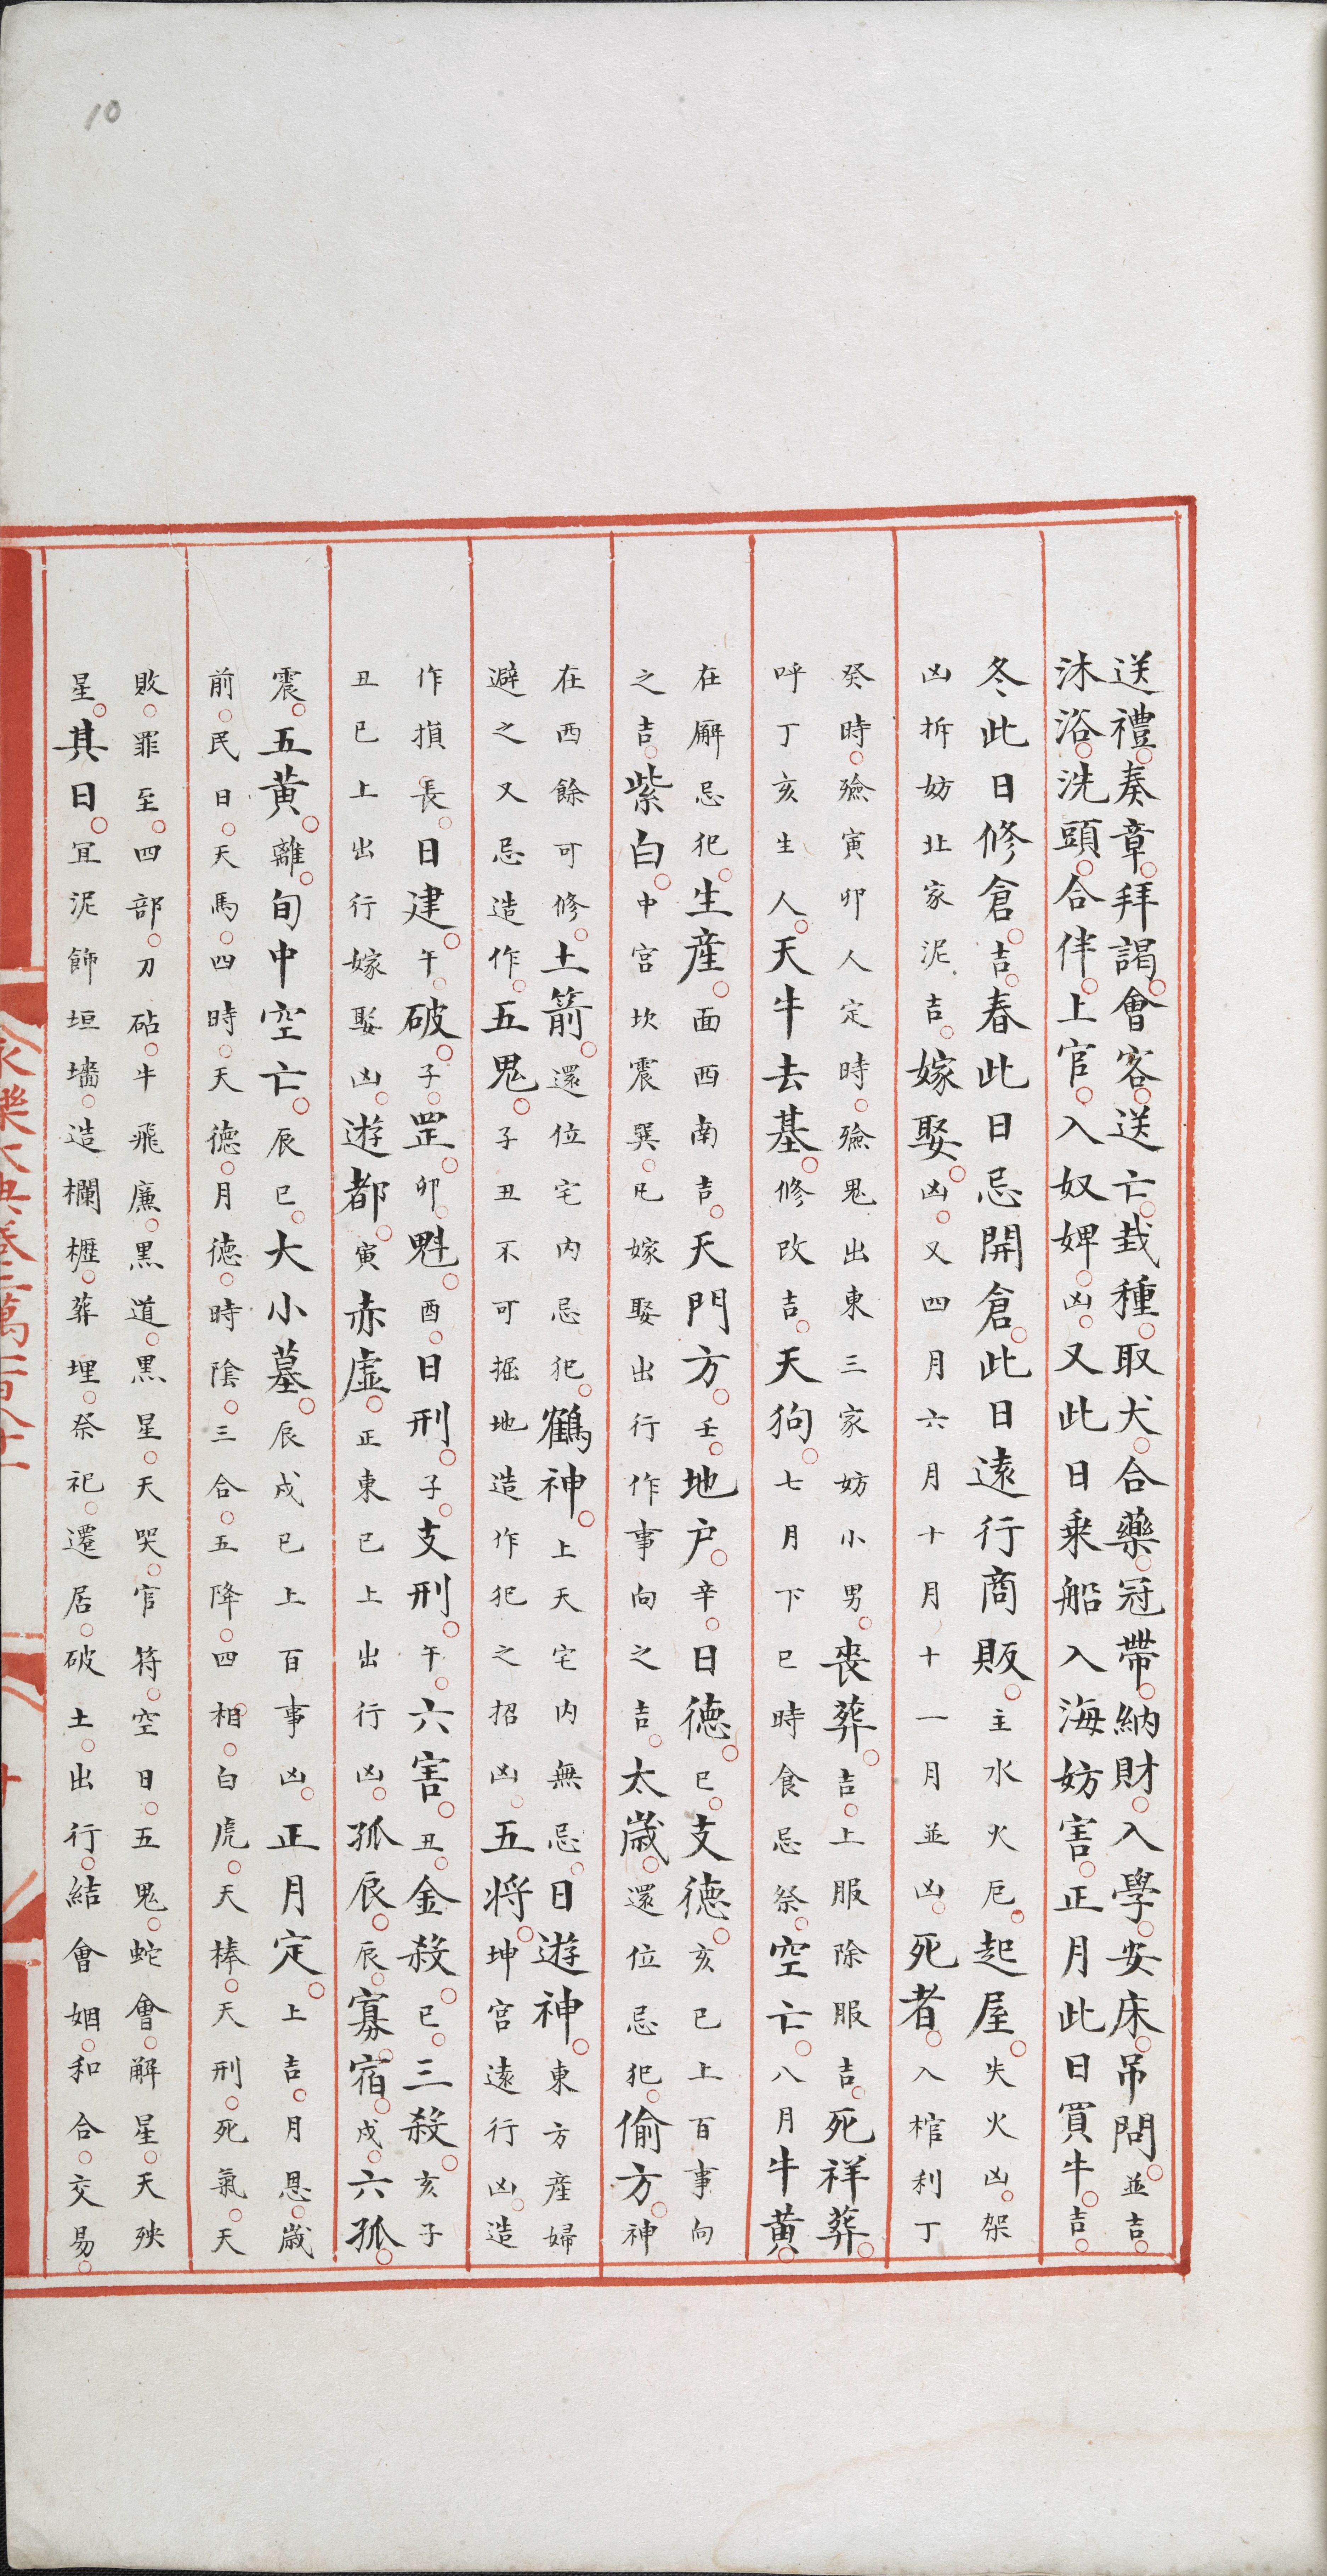 送禮奏章拜謁會客送亡栽種取犬合藥冠帶納財入學安床吊問並吉
沐浴洗頭合伴上官入奴婢凶又此日乘船入海妨害正月此日買牛吉
冬此日修倉吉春此日忌開倉此日遠行商販主水火厄起屋失火凶架
凶拆妨北家泥吉嫁娶凶又四月六月十月十一月並凶死者入棺利丁
癸時殮寅卯人定時殮鬼出東三家妨小男喪葬吉上服除服吉死祥葬
呼丁亥生人天牛去基修改吉天狗七月下巳時食忌祭空亡八月牛黃
在廨忌犯生產面西南吉天門方壬地户辛日德巳支德亥已上百事向
之吉紫白中宮坎震巽凡嫁娶出行作事向之吉太歲還位忌犯偷方神
在西餘可修土箭還位宅內忌犯鶴神上天宅內無忌日遊神東方產婦
避之又忌造作五鬼子丑不可掘地造作犯之招凶五將坤宮遠行凶造
作損長日建午破子罡卯魁酉日刑子支刑午六害丑金殺巳三殺亥子
丑已上出行嫁娶凶遊都寅赤虛正東已上出行凶孤辰辰寡宿戌六孤
震五黃離旬中空亡辰巳大小墓辰戌已上百事凶正月定上吉月恩歲
前民日天馬四時天德月德時陰三合五降四相白虎天棒天刑死氣天
敗罪至四部刀砧牛飛廉黑道黑星天哭官符空日五鬼蛇會解星天殃
星其日宜泥飾垣墻造欄櫪葬埋祭祀遷居破土出行結會姻和合交易
10